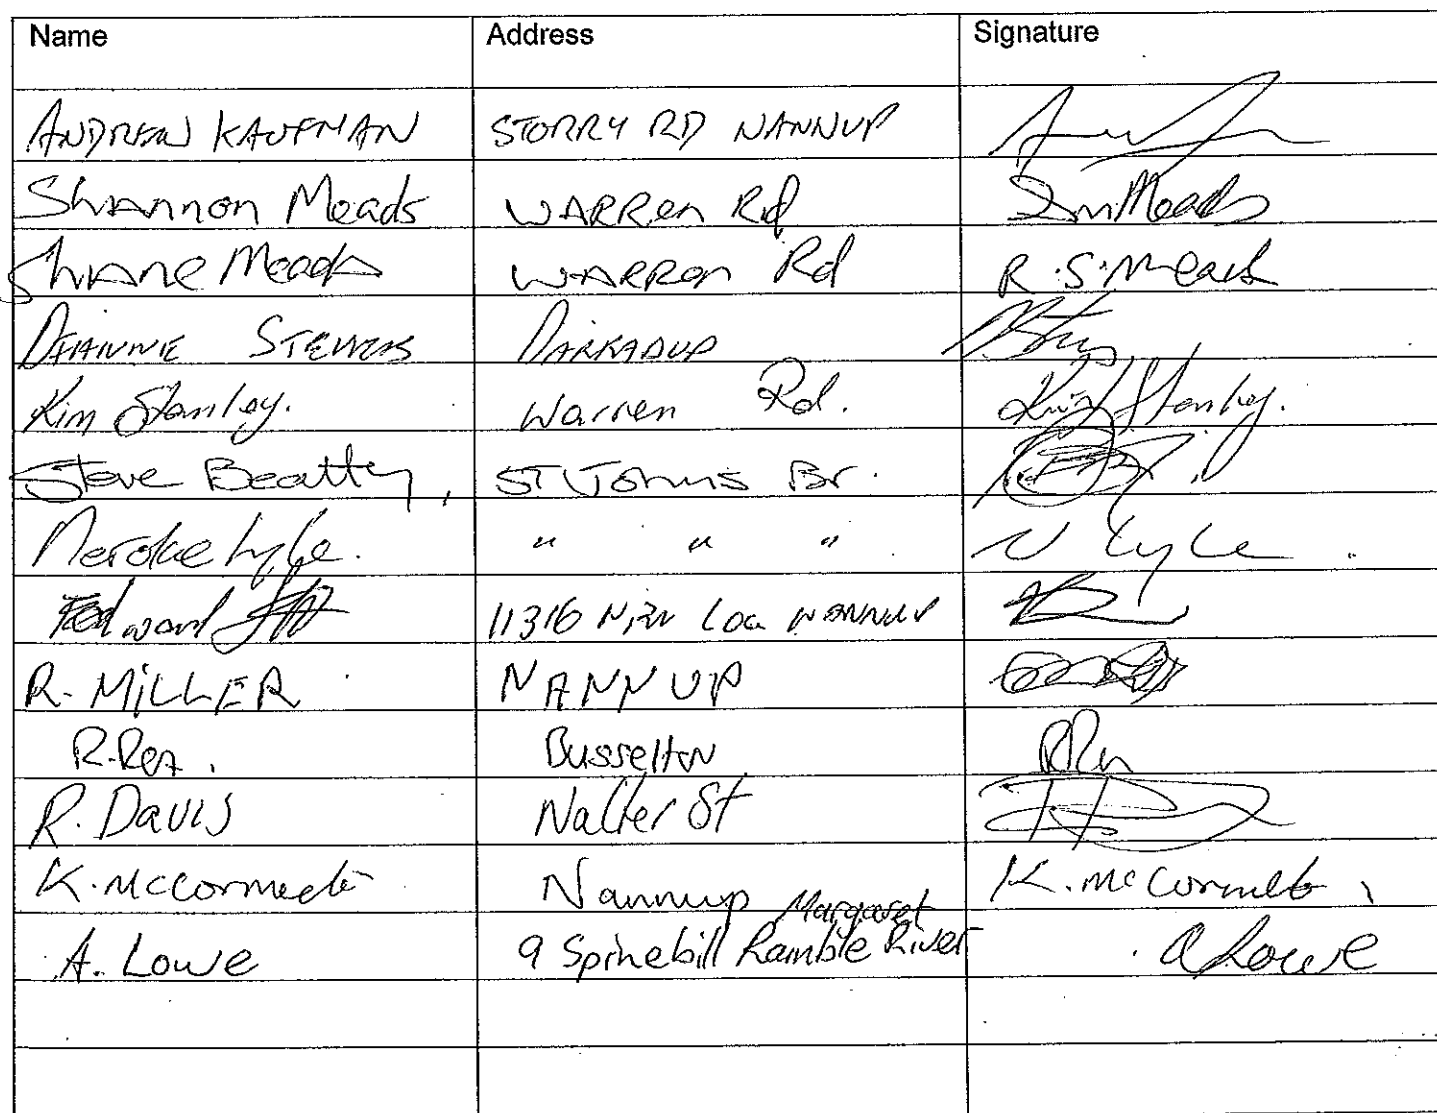 Name Address Signature
ANDREW KAUFMAN STORRY RD NANNUP
Shannon Meads WARREn Rd Meads
Shane Meads WARREn Rd R.S. Meads
DIANNE STEVENS DARRADUP
Kim Stanley. Warren Rd. Kim Stanley.
Steve Beatty, ST Johns Br.
Lyle. " " " N Lyle.
Edward 11316 NANNUP
R. MiLLER NANNUP
R. Rea. Busselton R Rea
R. Davis St
K. McCormack Nannup K. McCormack
A. Lowe 9 Spinebill Ramble Margaret River A Lowe